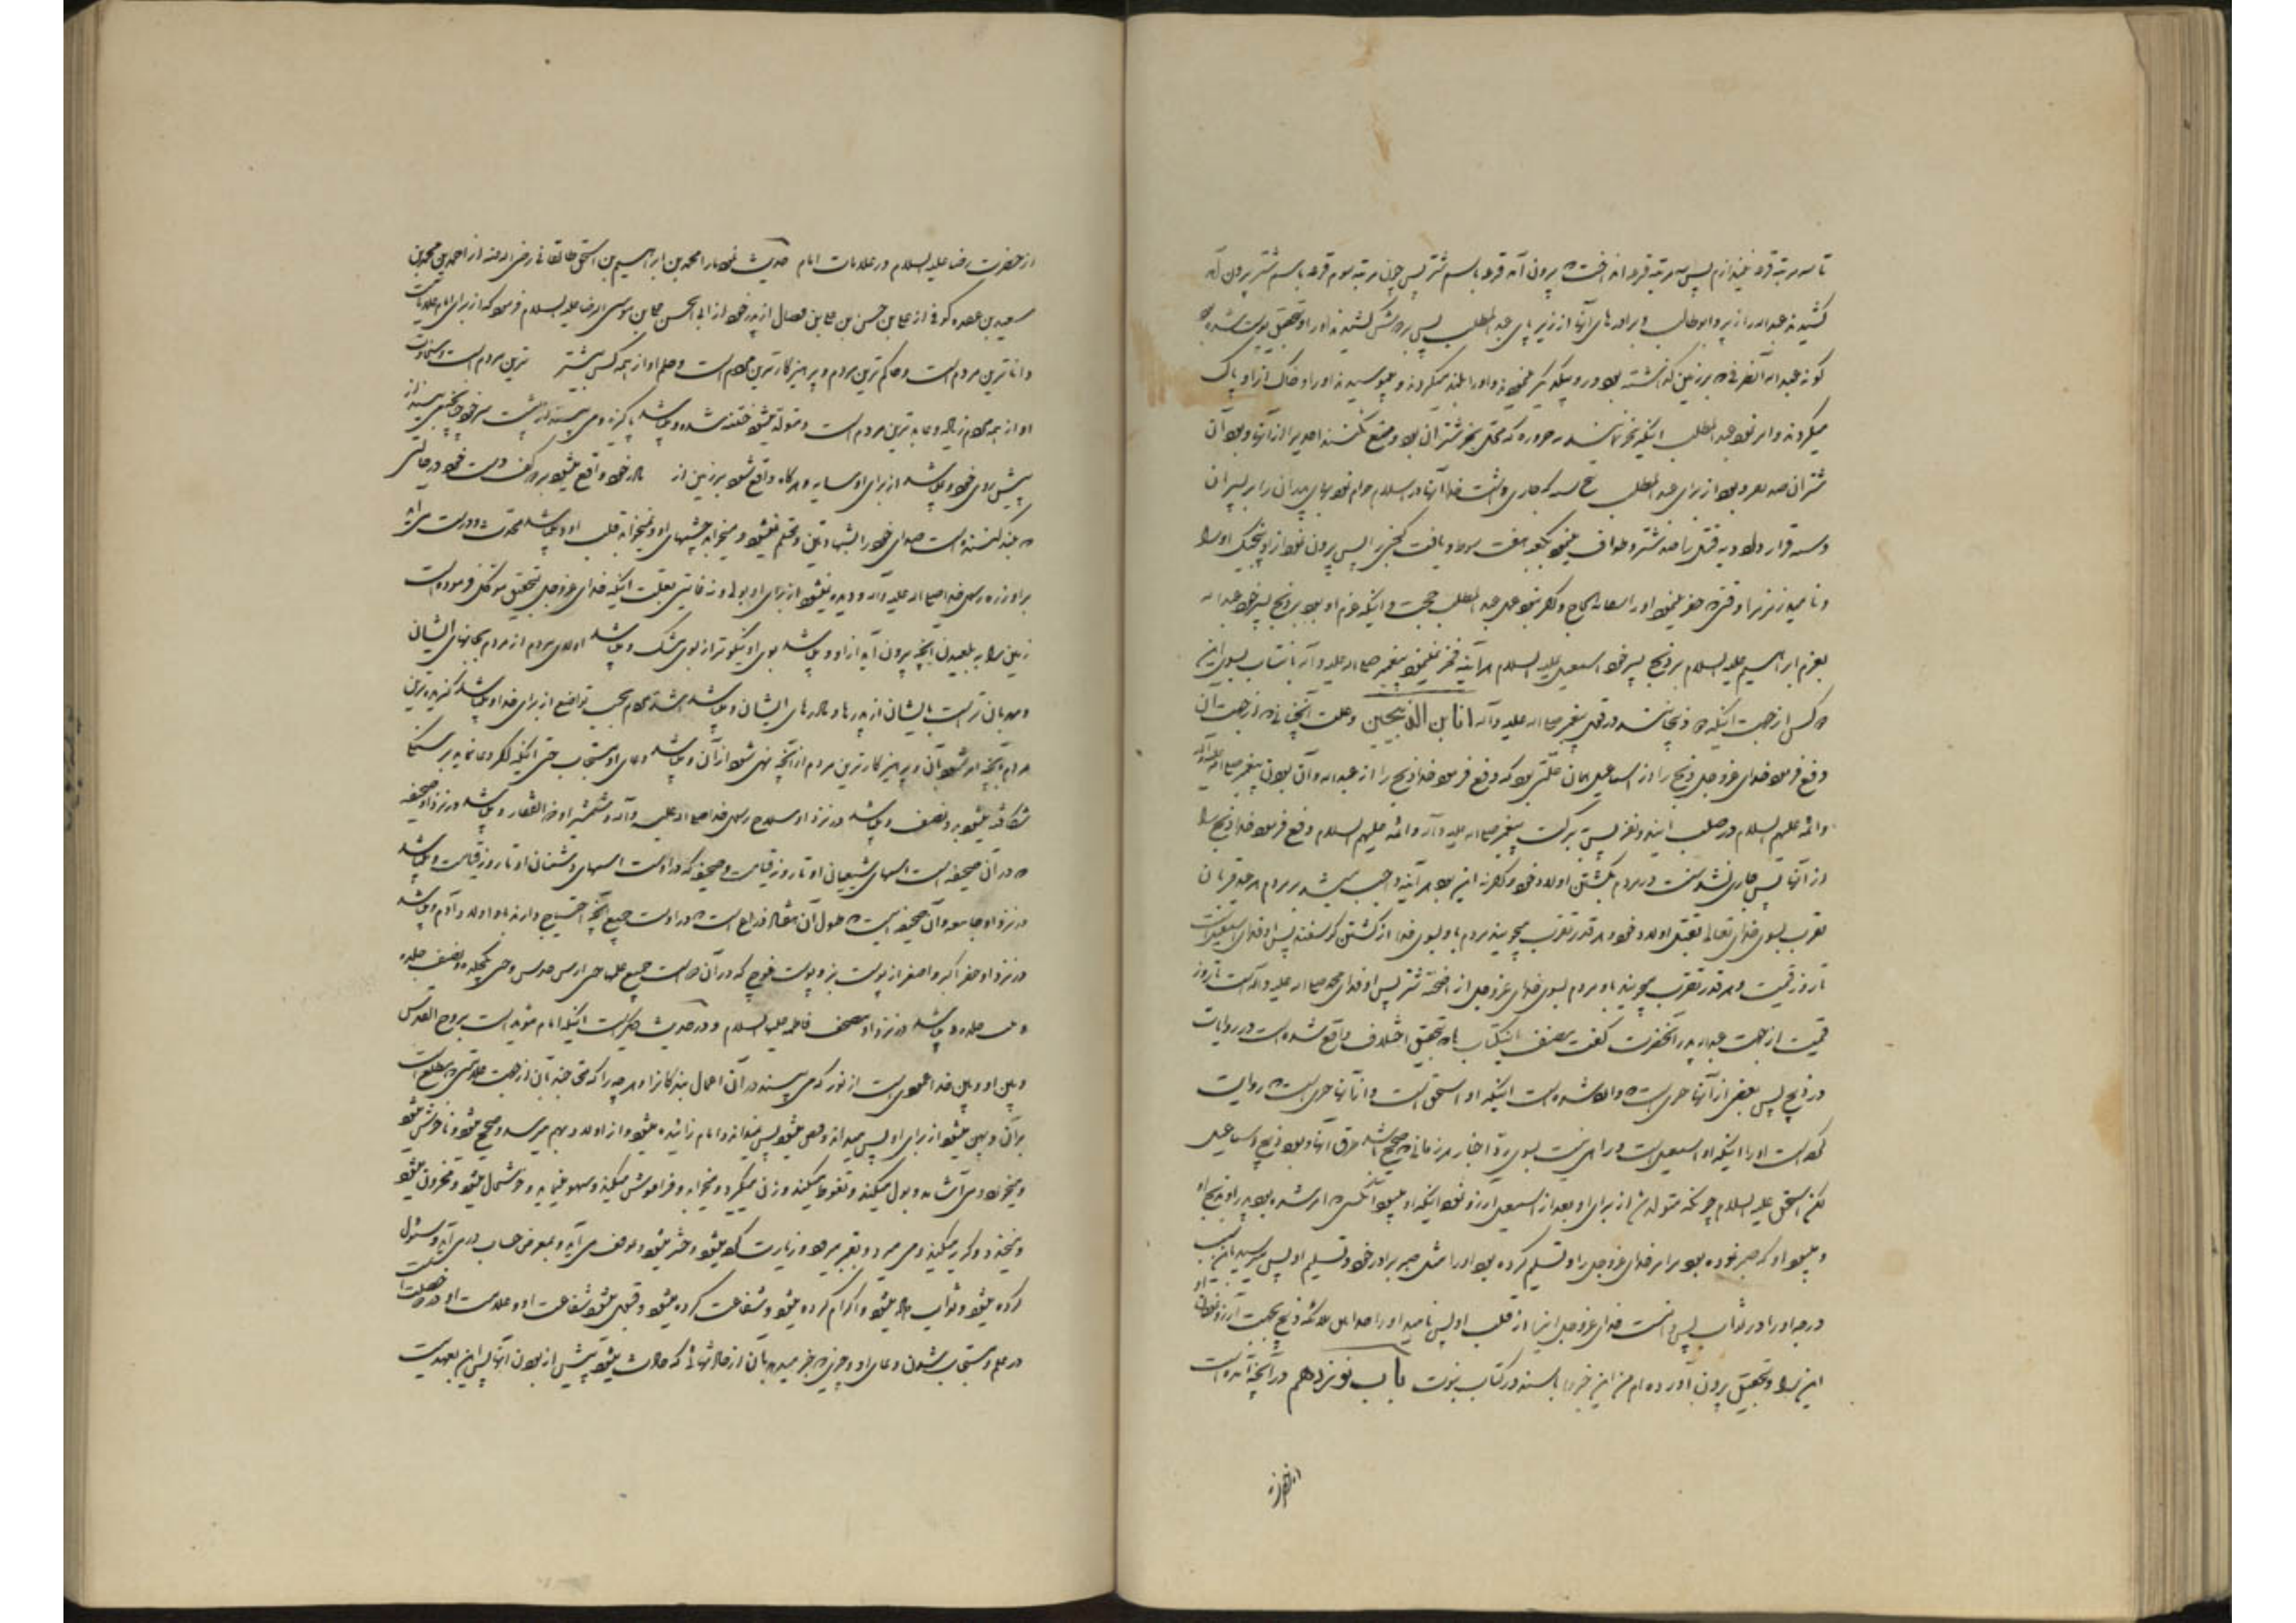 تا سه مرتبه قرعه نیندازم پس سه مرتبه قرعه انداخت که بیرون آمد قرعه باسم شتر پس چون مرتبه سوم قرعه باسم شتر بیرون آمد
کشیدند عبدالله را زبیر و ابوطالب و برادرهای آنها از زیر پای عبدالمطلب پس
گونه عبدالله آنطرفی که بر زمین گذاشته بود و رو بیکدیگر و او را بلند میکردند و میبوسیدند او را و خاک از او پاک
میکردند و امر نمود عبدالمطلب اینکه نحر نمایند به حزوره که محل نحر شتران بود و منع نکنند احدیرا از آنها و بود آن
شتران صد عدد و بود از برای عبدالمطلب پنج سنه که جاری داشت خدا آنها در اسلام حرام نمود زنهای پدران را بر پسران
و سنه قرار داد دیه قتل را صد شتر و طواف مینمود بکعبه هفت شوط و یافت گنجی را پس بیرون نمود از او پنجیک او را
و نامید زمزم را وقتیکه حفر نمود او را سقایة الحاج و اگر نبود عمل عبدالمطلب حجت و اینکه عزم او بود بر ذبح پسر خود عبدالله
بعزم ابراهیم علیه السلام بر ذبح پسر خود اسمعیل علیه السلام هر آینه فخر نمینمود پیغمبر صلی الله علیه و آله بانتساب بسوی این
دو کس از جهت اینکه دو ذبحانند در قول پیغمبر صلی الله علیه وآله انا ابن الذبیحین و علت آنچنانی که از جهت آن
دفع فرمود خدای عزوجل ذبح را از اسماعیل همان علتی بود که دفع فرمود خدا ذبح را از عبدالله و آن بودن پیغمبر صلی الله علیه وآله
و ائمه علیهم السلام در صلب این دو نفر پس ببرکت پیغمبر صلی الله علیه و آله و ائمه علیهم السلام دفع فرمود خدا ذبح را
از آنها پس جاری نشد سنت در مردم بکشتن اولاد خود و اگر نه این بود هر آینه واجب میشد بر مردم هر عید قربان
تقرب بسوی خدای تعالی بقتل اولاد خود و هر قدر تقرب میجویند مردم باو بسوی خدا از کشتن گوسفند پس او فدای اسمعیل است
تا روز قیامت و هر قدر تقرب میجویند باو مردم بسوی خدای عزوجل از اضحیه شتر پس او فدای محمد صلی الله علیه و اله است تا روز
قیامت از جهت عبدالله پدر آنحضرت گفت مصنف اینکتاب که بتحقیق اختلاف واقع شده است در روایات
در ذبیح پس بعضی از آنها چیزی است که وارد شده است اینکه او اسحق است و از آنها چیزی است که روایت
کرده است او را اینکه او اسمعیل است و راهی نیست بسوی رد اخبار هر زمانی که صحیح باشد طرق آنها و بود ذبیح اسماعیل
لکن اسحق علیه السلام چونکه متولد شد از برای او بعد از اسمعیل آرزو نمود اینکه او میبود آنکسی که امر شده بود پدر او بذبح او
و میبود او که صبر نموده بود بر امر خدای عزوجل را و تسلیم کرده بود او را مثل صبر برادر خود و تسلیم او پس میرسید باین سبب
درجه او را در ثواب پس دانست خدای عزوجل اینرا از قلب او پس نامید او را میان ملائکه ذبیح بجهت آرزو نمودن او
این را و بتحقیق بیرون آورده ام من این خبر را با سند در کتاب نبوت باب نوزدهم در آنچه آمده است
از حضرت
از حضرت رضا علیه السلام در علامات امام حدیث نمود ما را محمد بن ابراهیم بن اسحق طالقانی رضی الله عنه از احمد بن محمد بن
سعید بن عقده کوفی از علی بن حسن بن علی بن فضال از پدر خود از ابی الحسن علی بن موسی الرضا علیه السلام فرمود که از برای امام علاماتست
دانا ترین مردم است و حاکم ترین مردم و پرهیزکارترین مردم است و حلم او از همه کس بیشتر ترین مردم است و سخاوت
او از همه مردم زیاد و عابد ترین مردم است و متولد میشود ختنه شده و میباشد پاکیزه و می بیند از پشت سر خود چنانچه می بیند از
پیش روی خود و نمیباشد از برای او سایه و هرگاه واقع شود بر زمین از مادر خود واقع میشود بر دو کف دست خود در حالتی
که بلند کننده است صدای خود را بشهادتین و محتلم نمیشود و میخوابد چشمهای او و نمیخوابد قلب او و میباشد محدث و درست می آید
بر او زره رسول خدا صلی الله علیه وآله و دیده نمیشود از برای او بولی و نه غایتی بعلت اینکه خدای عزوجل بتحقیق موکل فرموده است
زمین را به بلعیدن آنچه بیرون آید از او و میباشد بوی او نیکوتر از بوی مشک و میباشد اولای مردم از مردم بجانهای ایشان
و مهربان تر است بایشان از پدرها و مادرهای ایشان و میباشد اشد مردم بحسب تواضع از برای خدا و میباشد گیرنده ترین
مردم بآنچه امر شود بآن و پرهیزکارترین مردم از آنچه نهی شود از آن و میباشد دعای او مستجاب حتی اینکه اگر دعا نماید بر سنگ
شکافته میشود بدو نصف و میباشد در نزد او سلاح رسول خدا صلی الله علیه وآله و شمشیر او ذوالفقار و میباشد در نزد او صحیفه
که در آن صحیفه است اسمهای شیعیان او تا روز قیامت و صحیفه که در اوست اسمهای دشمنان او تا روز قیامت و میباشد
در نزد او جامعه و آن صحیفه ایست که طول آن هفتاد ذراع است که در اوست جمیع آنچه احتیاج دارند باو اولاد آدم و میباشد
در نزد او جفر اکبر و اصغر از پوست بز و پوست قوچ که در آن دو است جمیع علمها حتی ارش خدش و حتی یکجلده و نصف جلده
و ثلث جلده و میباشد در نزد او مصحف فاطمه علیها السلام و در حدیث دیگر است اینکه امام مؤید است بروح القدس
و میان او و میان خدا عمودی است از نور که می بیند در آن اعمال بندگانرا و هر چه را که محتاجند بآن از جهت علامتی که مطلع است
بر آن و پهن میشود از برای او پس میداند و قبض میشود پس نمیداند و امام زائیده میشود و از او اولاد بهم میرسد و صحیح میشود و ناخوش میشود
و میخورد و می آشامد و بول میکند و تغوط میکند و زن میگیرد و میخوابد و فراموش میکند و سهو مینماید و خوشحال میشود و محزون میشود
و میخندد و گریه میکند و می میرد و بقبر میرود و زیارت کرده میشود و حشر میشود و بموقف می آید و بمعرض حساب در می آید و مسئول
کرده میشود و ثواب داده میشود و اکرام کرده میشود و شفاعت کرده میشود و قبول میشود شفاعت او و علامت او در دو خصلت است
در علم و مستجاب شدن دعای او و هر چیزی که خبر میدهد بآن از حادثهائی که حادث میشود پیش از بودن آنها پس این بعهدیست